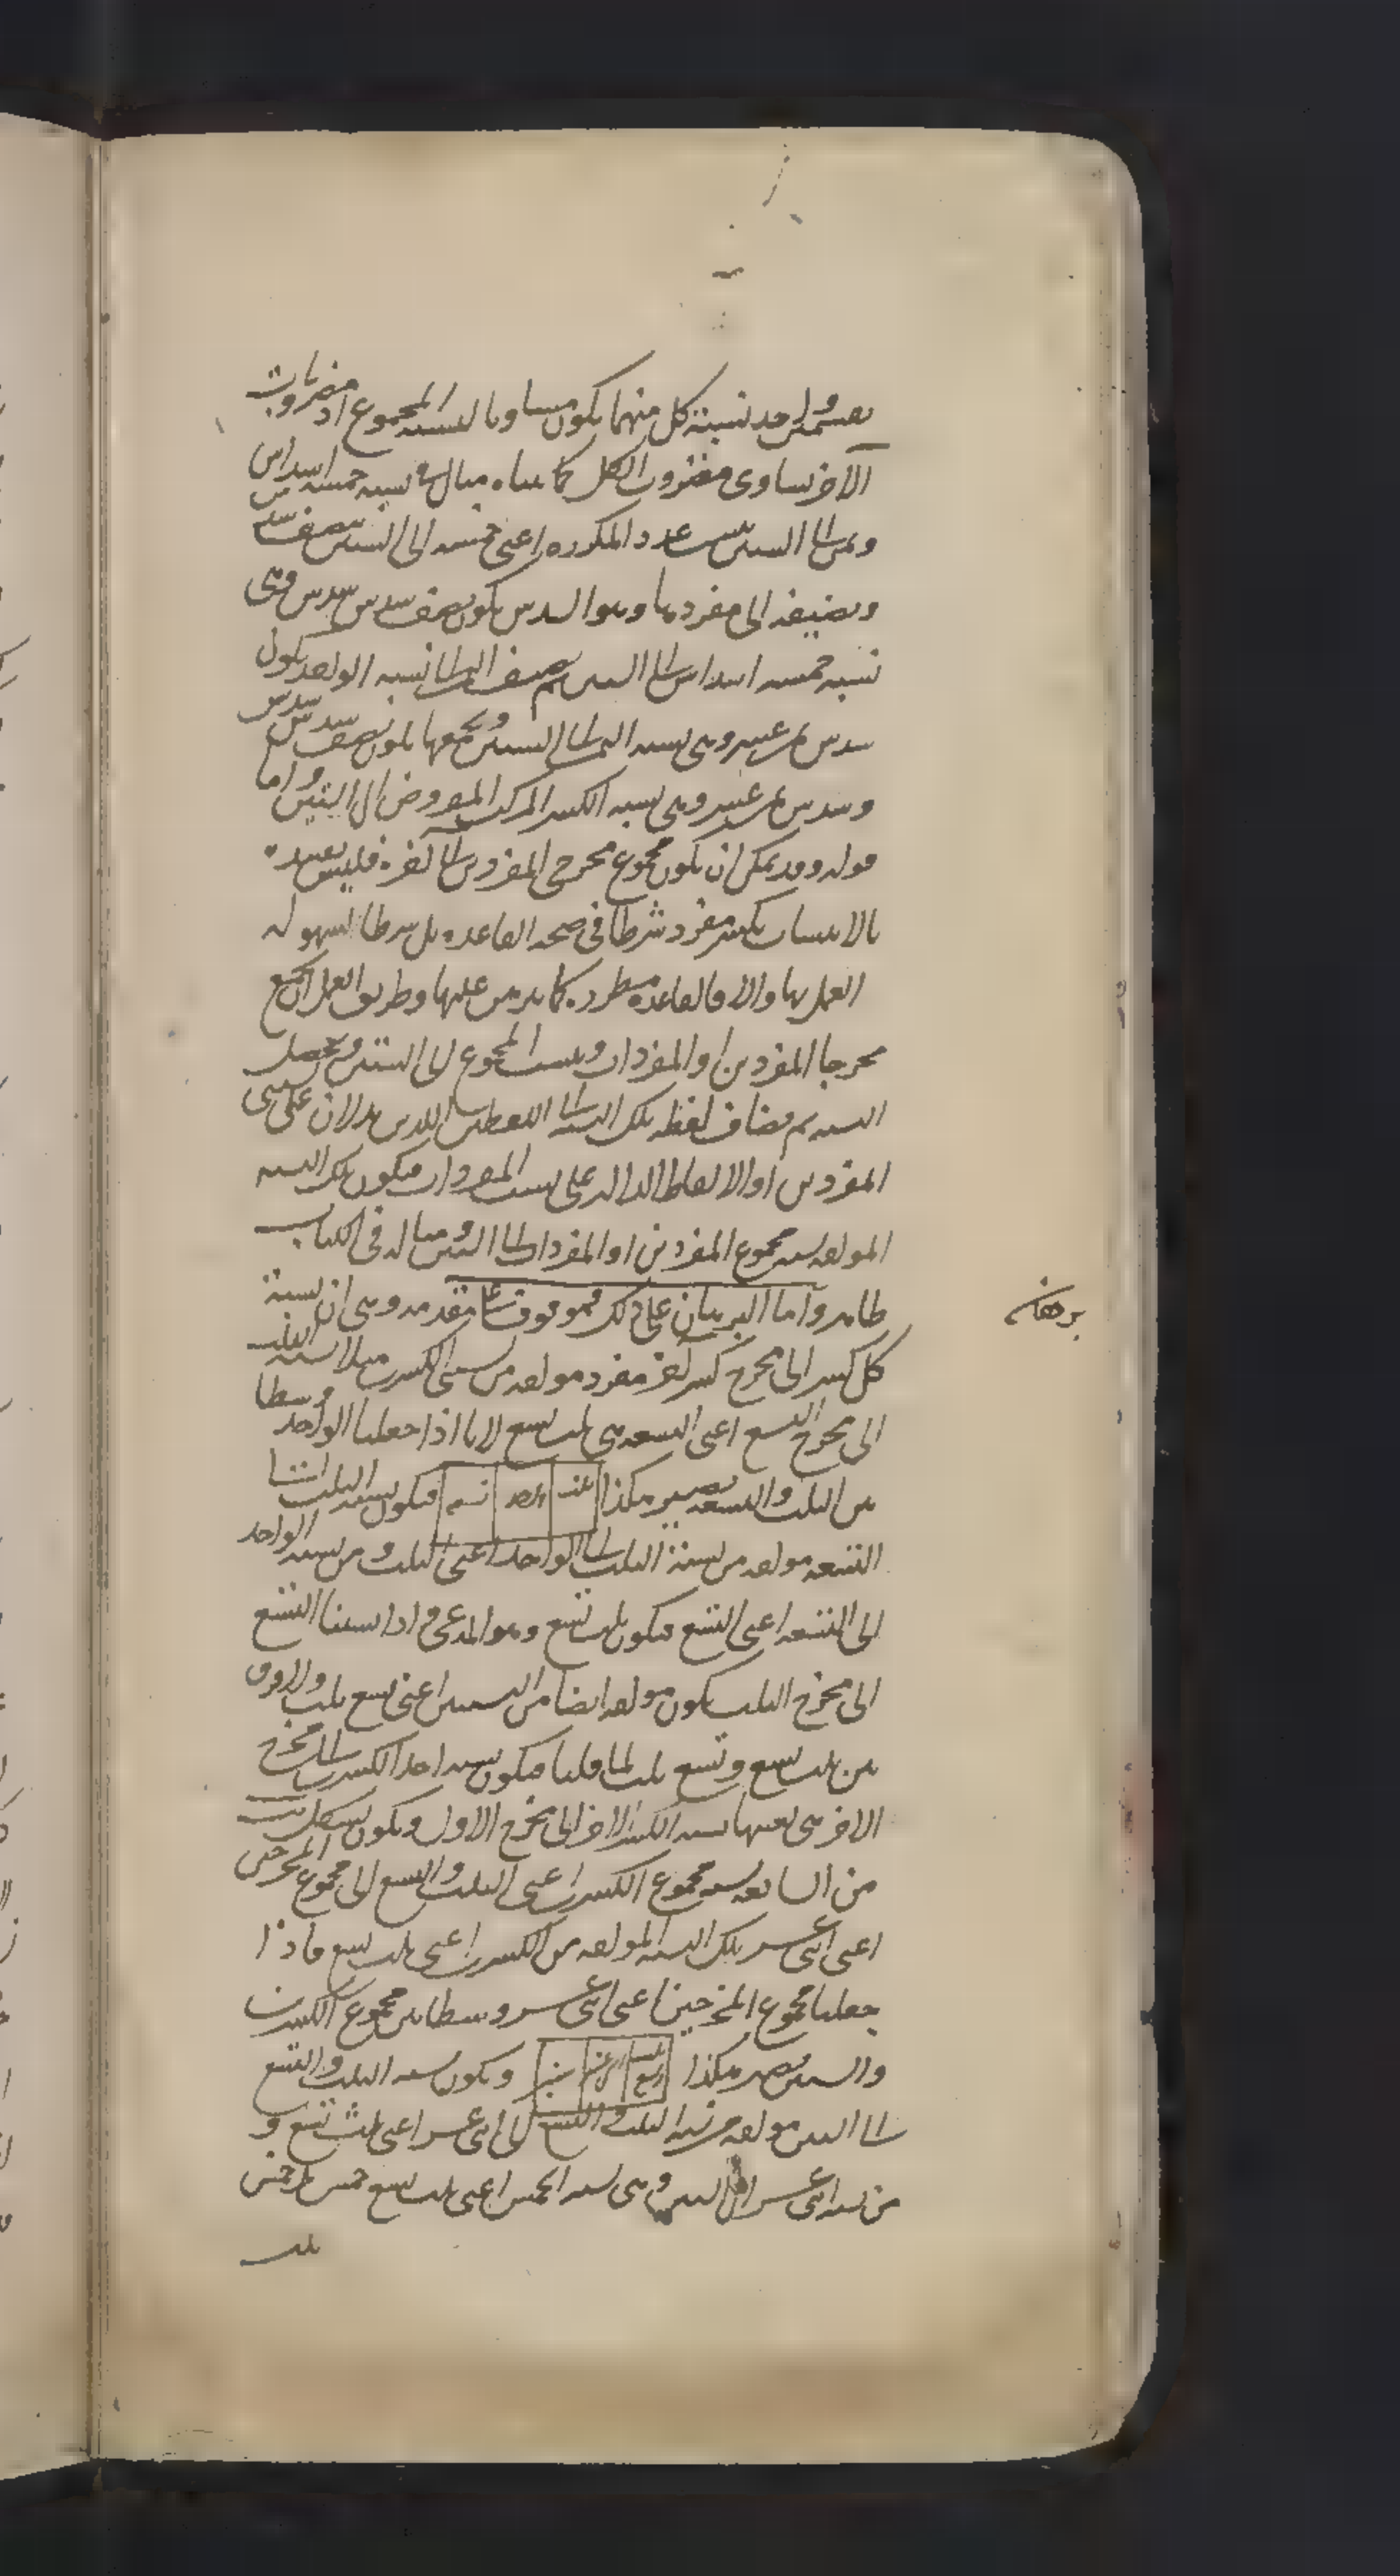 بقسمين واحد نسبة كل منهما يكون مساويا لنسبة المجموع اذ مضروبات
الآخر يساوى مضروب الكل كما بيناه مثال و نسبة خمسة اسداس
الى الستين ننسب عدد المكررة اعنى خمسة الى الستين نصف سدس
ونضيفه الى مفردها وهو السدس يكون نصف سدس سدس وهى
نسبة خمسة اسداس الى الستين ثم نسبة الواحد يكون
سدس عشر وهى نسبة الى الستين ونجمعها يكون نصف سدس سدس
وسدس عشر وهى نسبة الكسر المركب المفروض الى الستين واما
قوله وقد يمكن ان يكون مجموع مخرجى المفردين الى آخره فليس تقييده
بالانتساب بكسر مفرد شرطا فى صحة القاعدة بل شرطا لسهولة
العمل بها والا فالقاعدة مطردة كما برهن عليها وطريق العمل ان يجمع
مخرجا المفردين او المفردات وينسب المجموع الى الستين ويحصل
النسبة ثم يضاف لفظة تلك النسبة الى اللفظين اللذين يدلان على نسبتى
المفردين او الالفاظ الدالة على نسب المفردات فيكون تلك النسبة
المولفة نسبة مجموع المفردين او المفردات الى الستين ومثاله فى الكتاب
ظاهر واما البرهان على ذلك فهو موقوف على مقدمة وهى ان نسبة
برهانه
كل كسر الى مخرج كسر آخر مفرد مولفة من نسبتى الكسرين مثلا نسبة الثلث
الى مخرج التسع اعنى التسعة هى ثلث تسع لانا اذا جعلنا الواحد وسطا
بين الثلث والتسعة يصير هكذا ثلث واحد تسعة فيكون نسبة الثلث الى
التسعة مولفة من نسبة الثلث الى الواحد اعنى الثلث و من نسبة الواحد
الى التسعة اعنى التسع فيكون ثلث تسع وهو المدعى و اذا نسبنا التسع
الى مخرج الثلث يكون مولفة ايضا من النسبتين اعنى تسع ثلث ولا فرق
بين ثلث تسع وتسع ثلث لما قلنا فيكون نسبة احد الكسرين الى مخرج
الاخر هى بعينها نسبة الكسر الاخر الى مخرج الاول ويكون
من السابعة نسبة مجموع الكسرين اعنى الثلث والتسع الى مجموع المخرجين
اعنى اثنى عشر تلك النسبة المولفة من الكسرين اعنى ثلث تسع فاذا
جعلنا مجموع المخرجين اعنى اثنى عشر وسطا بين مجموع الكسرين
والستين يصير هكذا ثلث وتسع اثنى عشر ستين ويكون نسبة الثلث والتسع
الى الستين مولفة من نسبة الثلث والتسع الى اثنى عشر اعنى ثلث تسع و
من نسبة اثنى عشر الى الستين وهى نسبة الخمس اعنى ثلث تسع خمس
ثلث